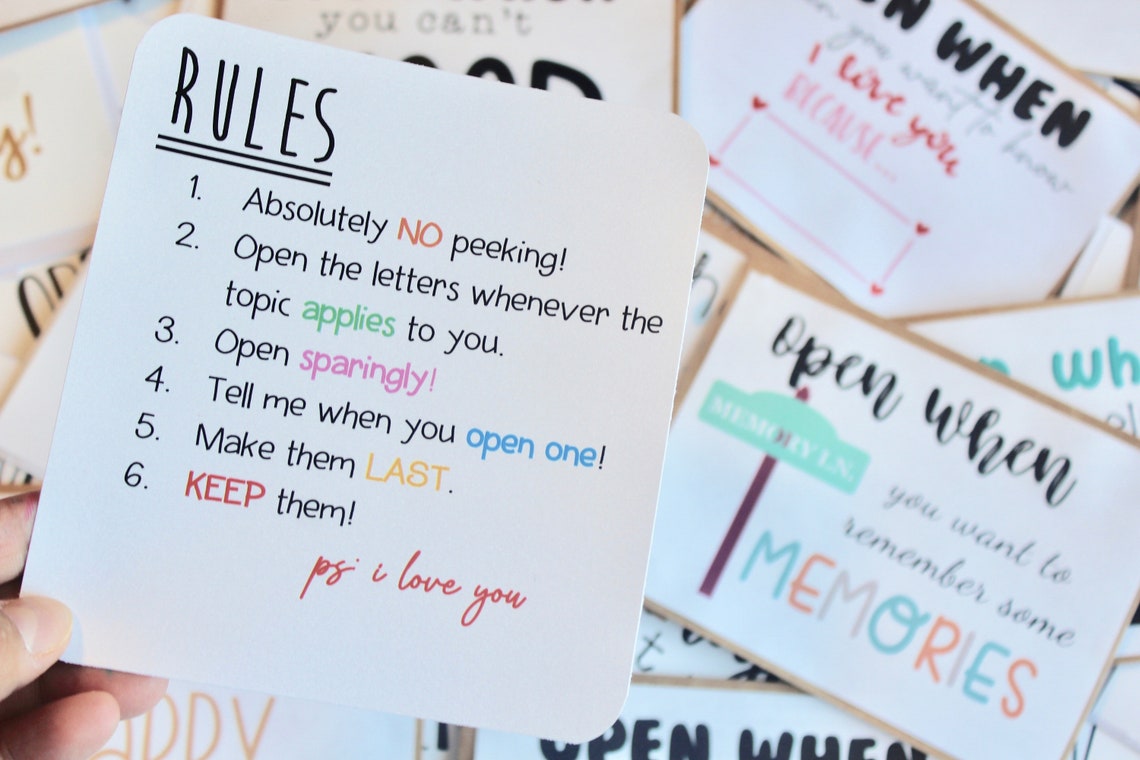 RULES
1. Absolutely NO peeking!
2. Open the letters whenever the
topic applies to you.
3. Open sparingly!
4. Tell me when you open one!
5. Make them LAST.
6. KEEP them!
ps. i love you
you can't
WHEN
when you want to know
I love you
BECAUSE...
open when
MEMORY LN.
you want to
remember some
MEMORIES
OPEN WHEN